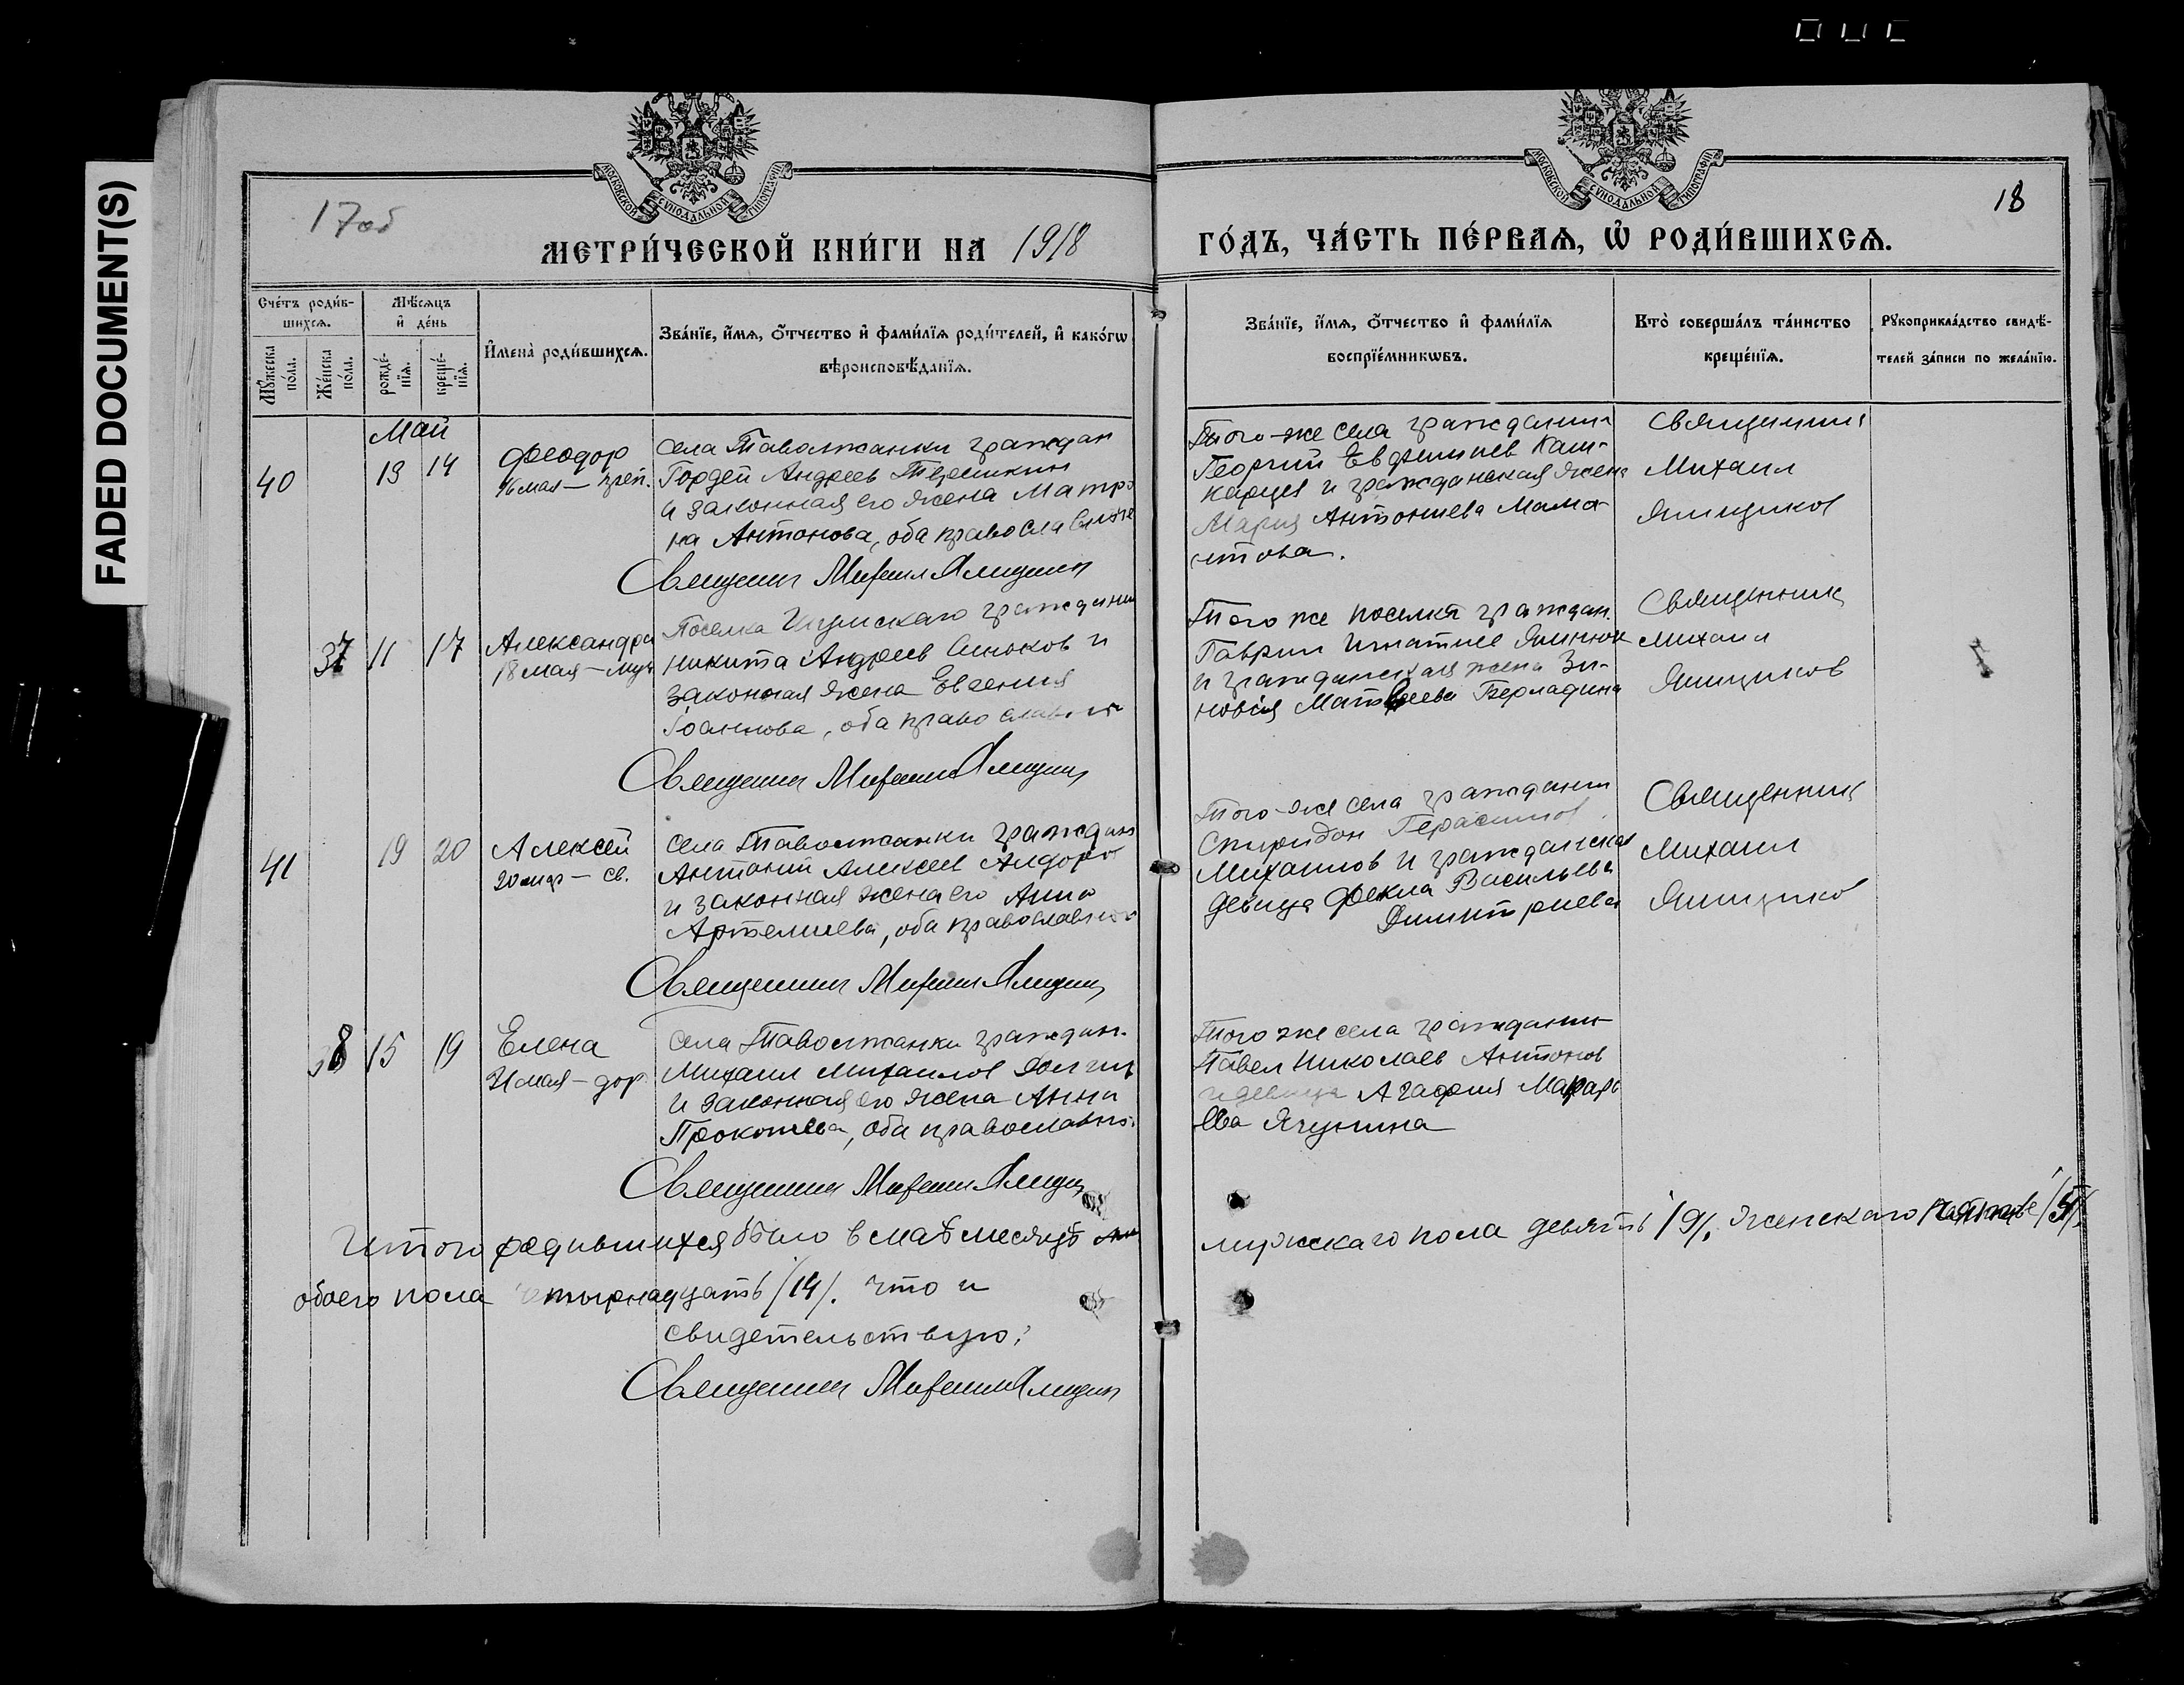 FADED DOCUMENT(S)
МОСКОВСКОЙ СѴНОДАЛЬНОЙ ТИПОГРАФІИ
МОСКОВСКОЙ СѴНОДАЛЬНОЙ ТИПОГРАФІИ
17об
18
МЕТРИ́ЧЕСКОЙ КНИ́ГИ НА 1918
ГО́ДЪ, ЧА́СТЬ ПЕ́РВАЯ, Ѡ҆ РОДИ́ВШИХСЯ.
Сче́тъ роди́в-
шихся.
Мꙋ́жеска по́ла.
Же́нска по́ла.
Мѣ́сяцъ
и҆ де́нь
рожде́-нїя.
креще́-нїя.
И҆мена̀ роди́вшихся.
Зва́нїе, и҆́мя, ѻ҆́тчество и҆ фами́лїя роди́телей, и҆ како́гѡ
вѣроисповѣ́данїя.
Зва́нїе, и҆́мя, ѻ҆́тчество и҆ фами́лїя
воспрїе́мникѡвъ.
Кто̀ соверша́лъ та́инство
креще́нїя.
Рꙋкоприкла́дство свидѣ́-
телей за́писи по жела́нїю.
Май
40
13 14
Феодор
16 мая —
села Таволжанки граждан
Гордей Андреев
и законная его жена Матро
на Антонова, оба православные
Священник Михаил Ямщиков
Того-же села гражданин
Георгий Евфимиев Каш-
карцев и гражданская жена
Мария Антониева Мама-
нтова.
Священник
Михаил
Ямщиков
37 11 17
Александра
18 мая —
Поселка гражданин
Никита Андреев и
законная жена Евгения
Іоаннова, оба православные
Священник Михаил Ямщиков
Того же поселка граждан.
Гаврил Игнатиев
и гражданская жена Зи-
новія Матвеева Берладина
Священник
Михаил
Ямщиков
41
19 20
Алексей
20 — св.
села Таволжанки граждан
Антоний Алексеев
и законная жена его Анна
Артемиева, оба православные
Священник Михаил Ямщиков
Того-же села гражданин
Спиридон Герасимов
Михаилов и гражданская
девица Фекла Васильева
Димитриева
Священник
Михаил
Ямщиков
38 15 19
Елена
21 мая — дор.
села Таволжанки граждан.
Михаил Михаилов
и законная его жена Анна
Прокопиева, оба православны.
Священник Михаил Ямщиков
Того же села гражданин
Павел Николаев Антонов
и девица Агафия Макарь
ева Ягунина
Итого родившихся было в маѣ месяцѣ
мужскаго пола девять /9/, женскаго пять /5/,
обоего пола четырнадцать /14/. Что и
свидетельствую:
Священник Михаил Ямщиков